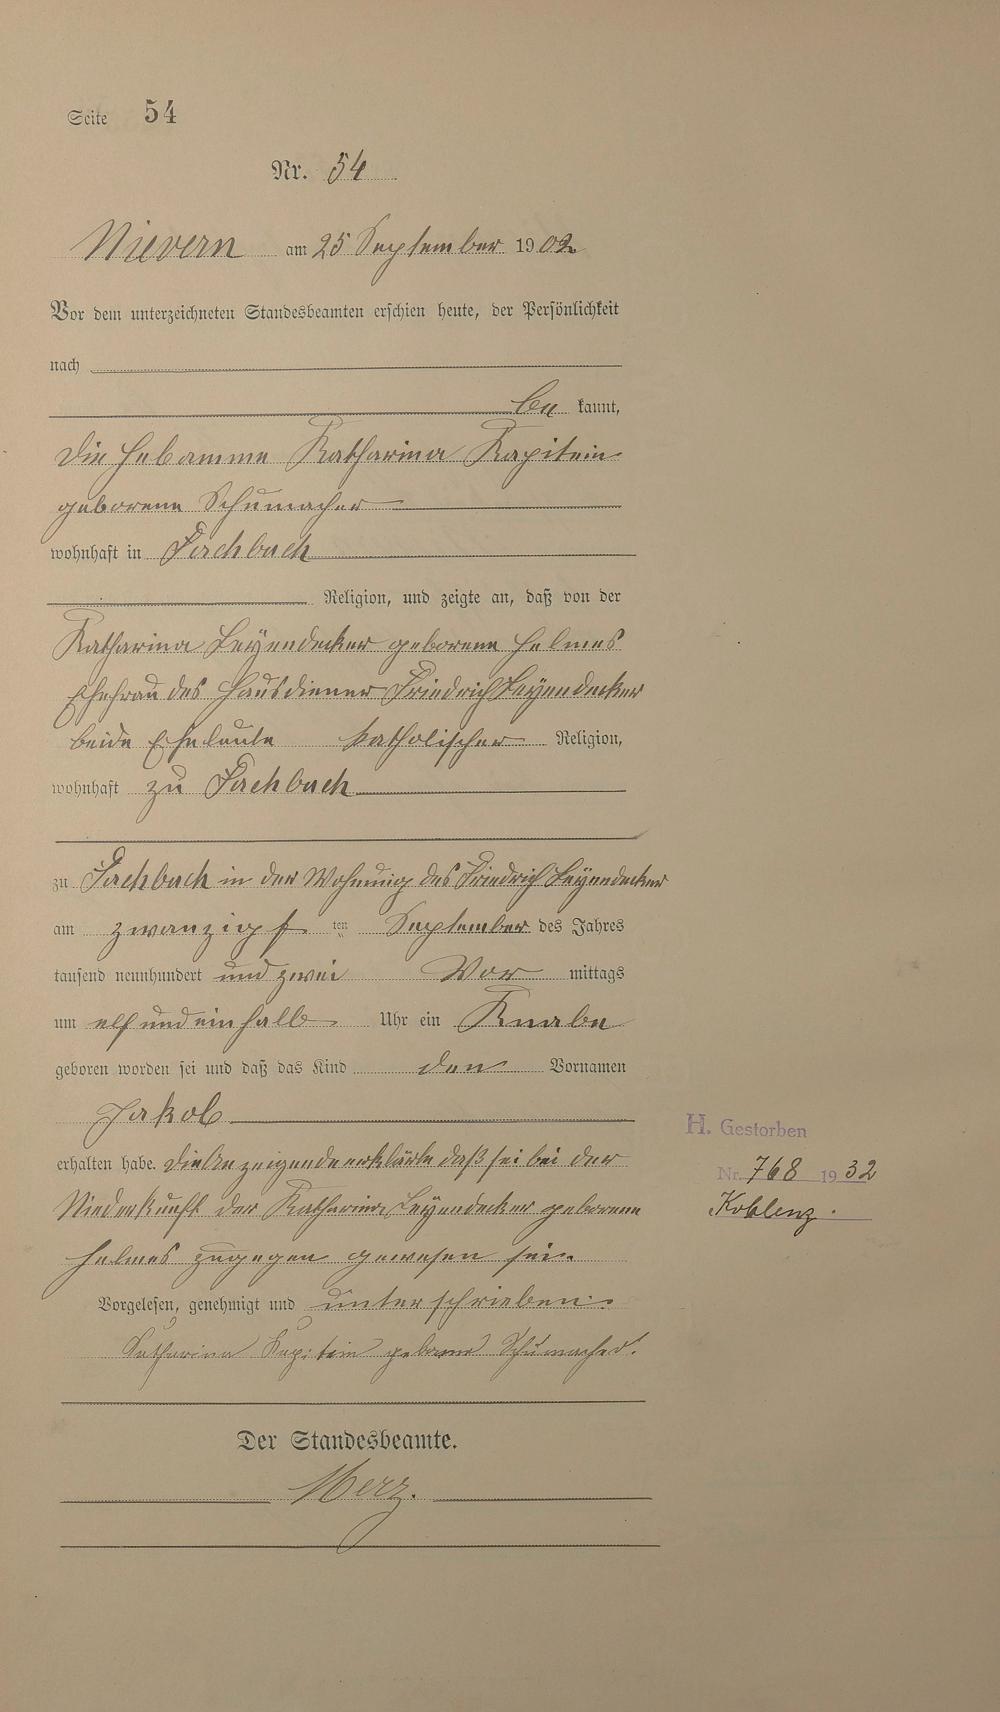 Seite 54
Nr. 54
Nievern am 25 September 1902
Vor dem unterzeichneten Standesbeamten erschien heute, der Persönlichkeit
nach
be kannt,
die Hebamme Katharina Kapitein
geborene Schumacher
wohnhaft in Fachbach
Religion, und zeigte an, daß von der
Katharina Leyendecker geborene Helmes
Ehefrau des Hausdiener Friedrich Leyendecker
beide Eheleute katholischer Religion,
wohnhaft zu Fachbach
zu Fachbach in der Wohnung des Friedrich Leyendecker
am zwanzigst ten September des Jahres
tausend neunhundert und zwei Vor mittags
um elf und ein halb Uhr ein Knabe
geboren worden sei und daß das Kind den Vornamen
Jakob
erhalten habe. Die Anzeigende erklärte daß sei bei der
Niederkunft der Katharina Leyendecker geborene
Helmes zugegen gewesen sei.
Vorgelesen, genehmigt und unterschrieben:
Katharina Kapitein geborene Schumacher.
Der Standesbeamte.
Merz.
H. Gestorben
Nr. 768 1932
Koblenz.